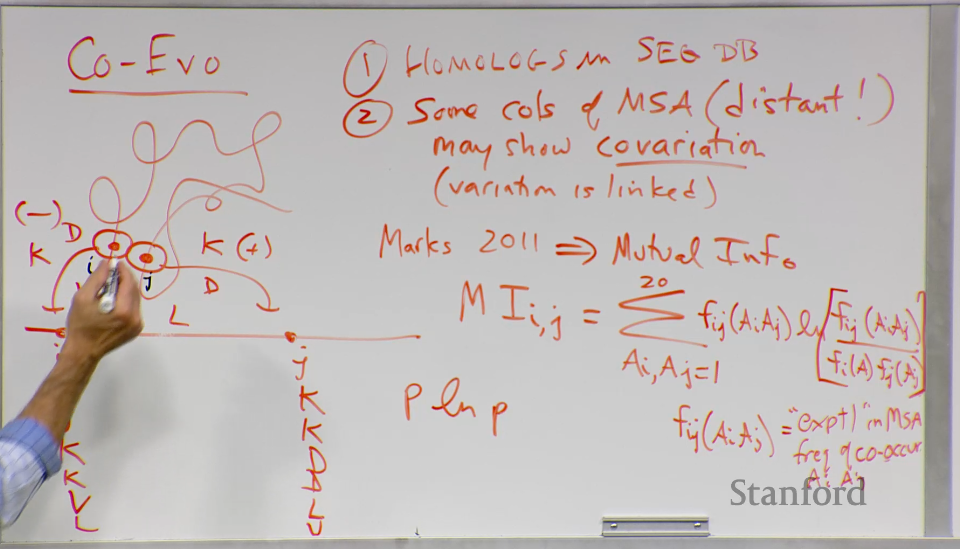 Co-Evo
① HOMOLOGS in SEQ DB
② Some cols of MSA (distant!)
may show covariation
(variation is linked)
Marks 2011 ⇒ Mutual Info
MI i,j = Σ 20 Ai, Aj = 1 fij (Ai Aj) ln [fij (Ai Aj) / fi(A) fj(Aj)]
p ln p
fij (Ai Aj) = "expt" in MSA
freq of co-occur
Ai Aj
(-) D
K
i
j
K (+)
D
L
j
K
K
D
D
L
V
K
K
V
L
Stanford